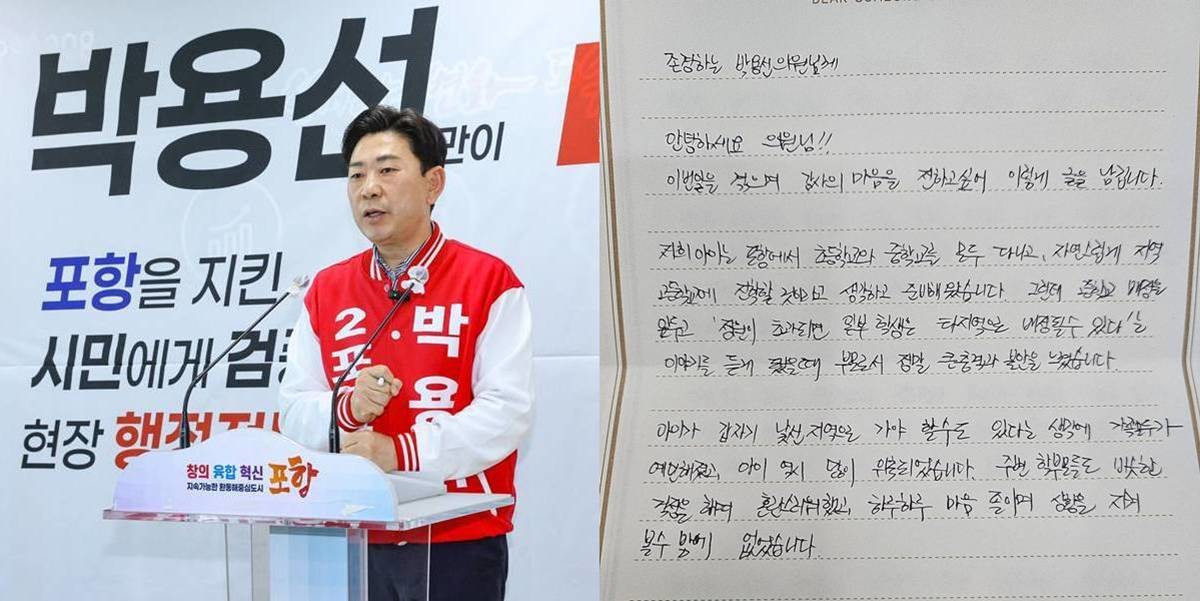 박용선
만이
포항을 지킨
시민에게 검증
현장 행정
박용
2
포
창의 융합 혁신 포항
지속가능한 환동해중심도시
존경하는 박용선의원님께
안녕하세요 의원님!!
이번일을 겪으며 감사의 마음을 전하고싶어 이렇게 글을 남깁니다.
저희 아이는 포항에서 초등학교와 중학교를 모두 다니고, 자연스럽게 지역
고등학교에 진학할 것이라고 생각하고 준비해왔습니다. 그런데 배정을
앞두고 '정원이 초과되면 일부 학생은 타지역으로 배정될수 있다'는
이야기를 듣게 되었을때 부모로서 정말 큰충격과 불안을 느꼈습니다.
아이가 갑자기 낯선 지역으로 가야 할수도 있다는 생각에 가족모두가
예민해졌고, 아이 역시 많이 위축되었습니다. 주변 학부모들도 비슷한
걱정을 하며 혼란스러워했고, 하루하루 마음 졸이며 상황을 지켜
볼수 밖에 없었습니다.